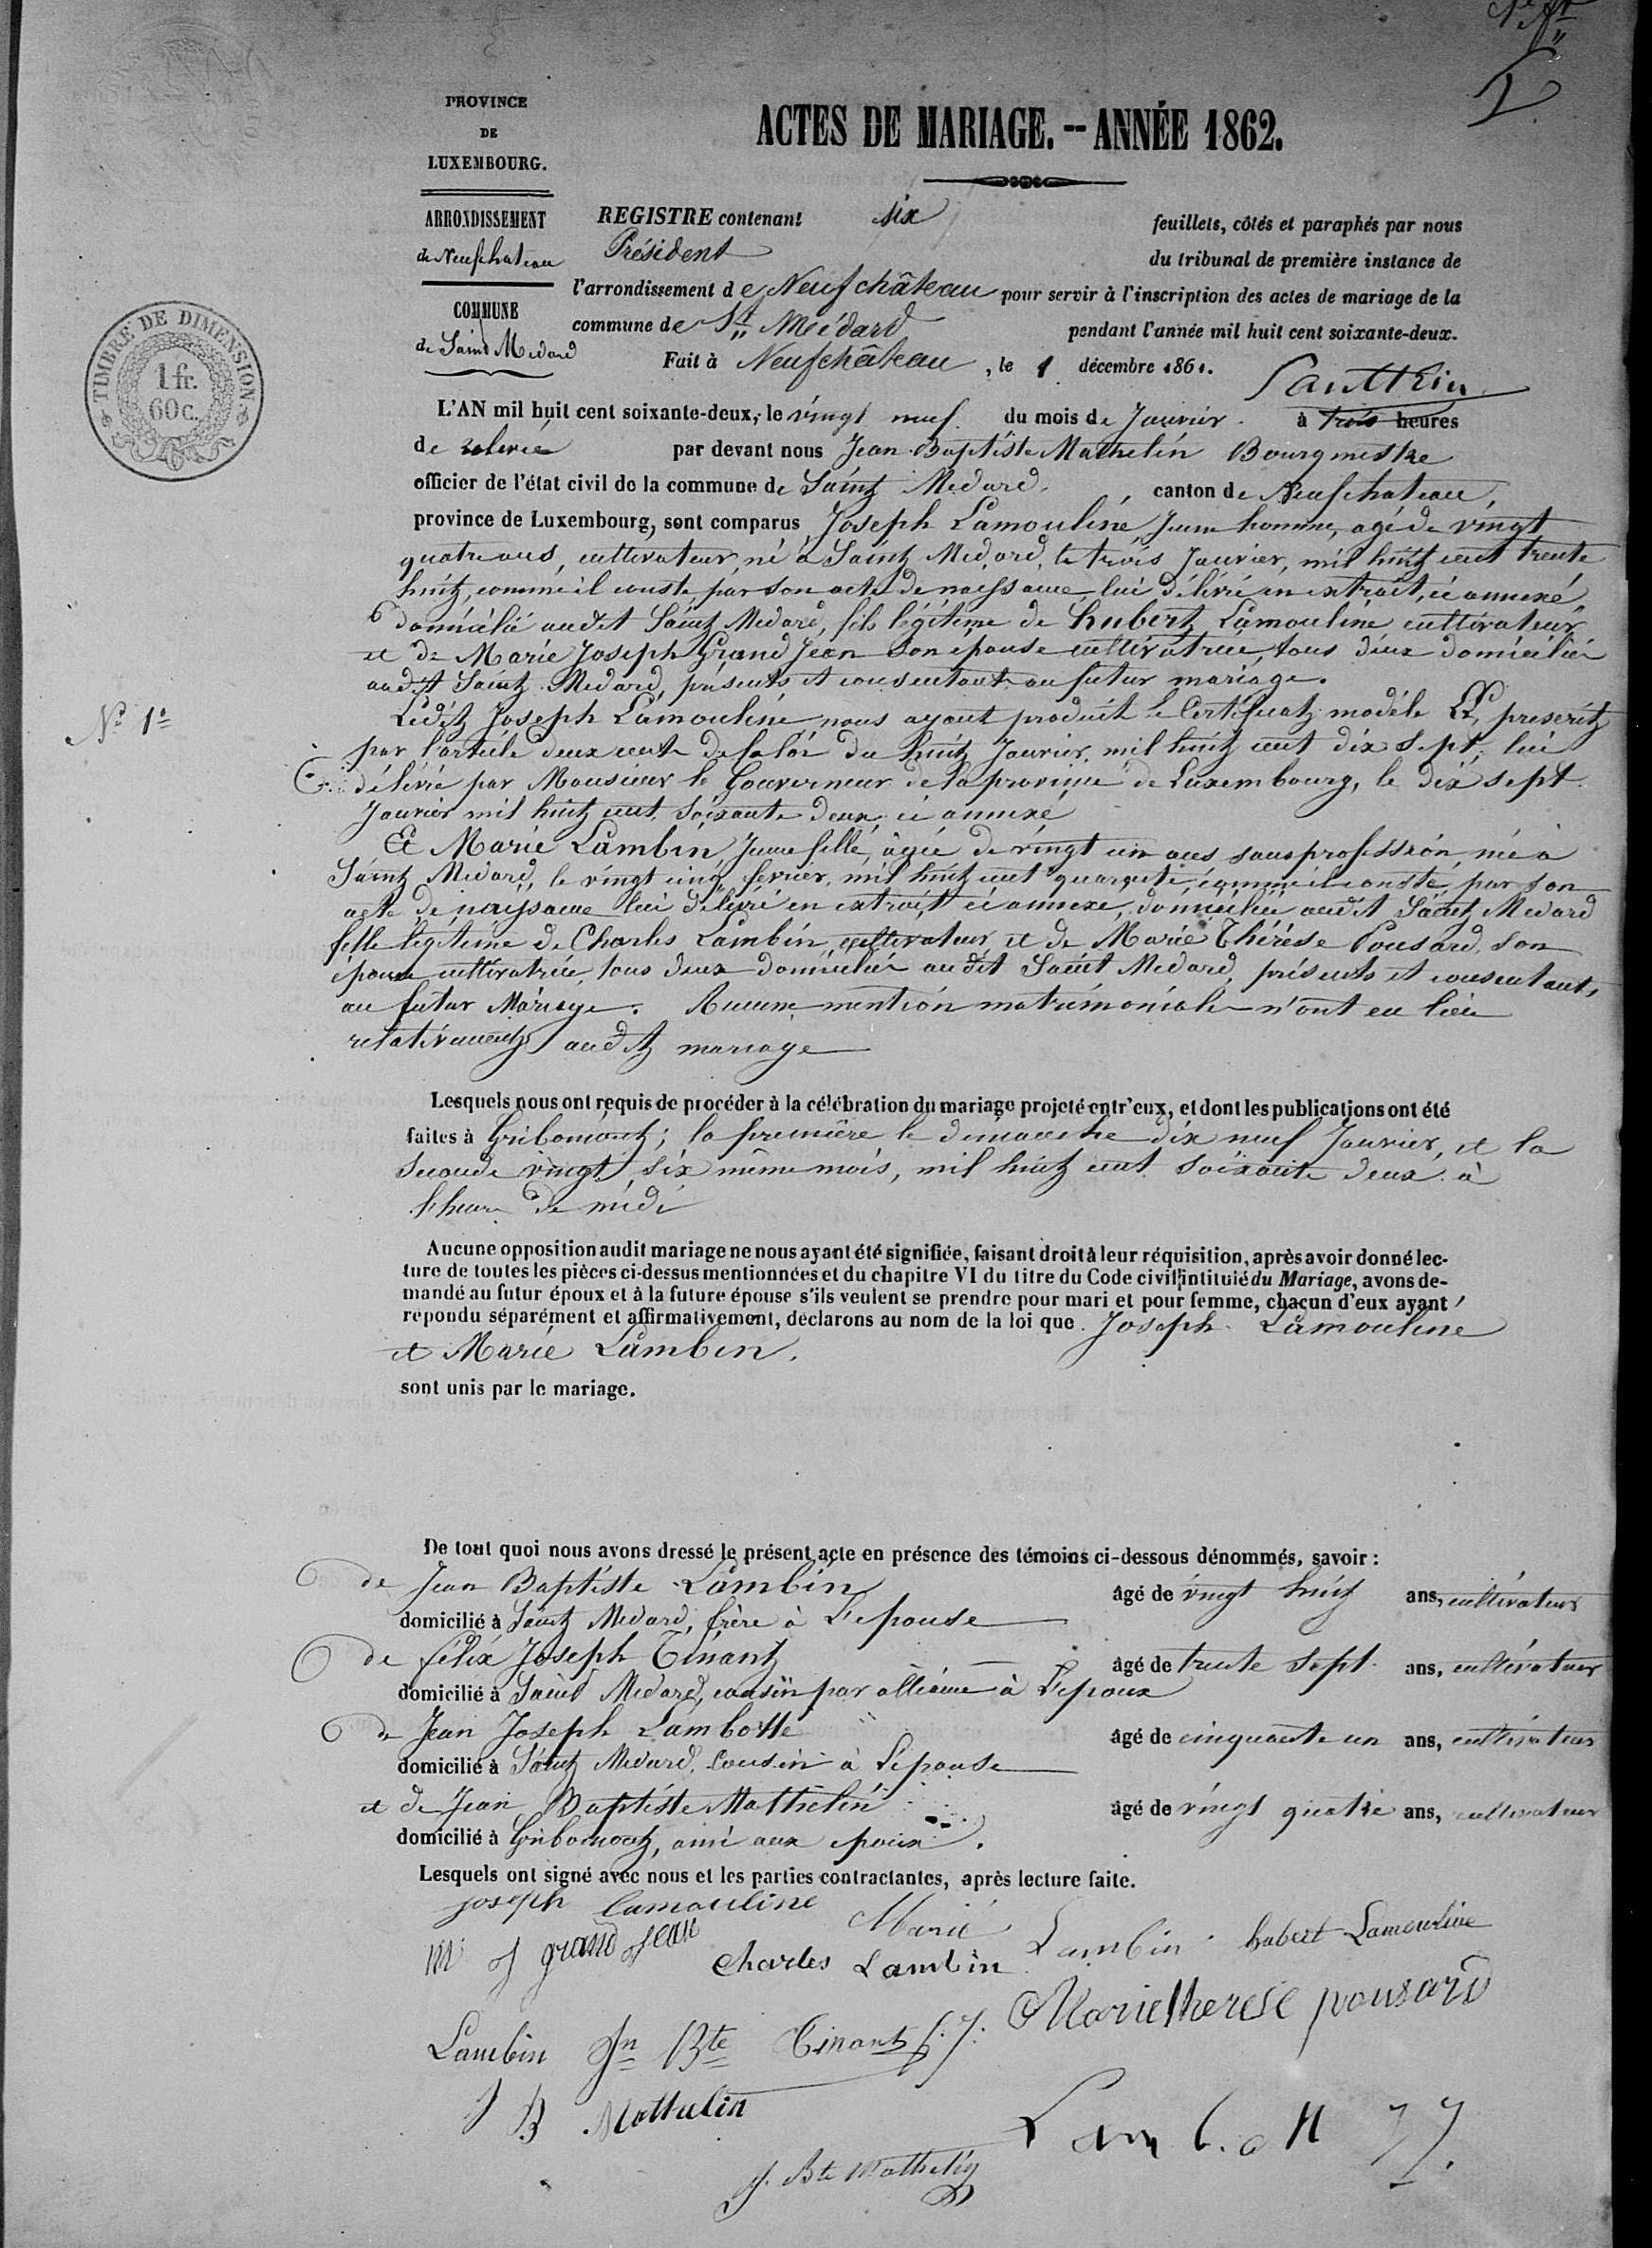 PROVINCE
DE
LUXEMBOURG.
ARRONDISSEMENT
de Neufchateau
COMMUNE
de Saint Medard
TIMBRE DE DIMENSION
1 fr.
60 c.
ACTES DE MARIAGE. -- ANNÉE 1862.
REGISTRE contenant six feuillets, côtés et paraphés par nous
Président du tribunal de première instance de
l'arrondissement de Neufchâteau pour servir à l'inscription des actes de mariage de la
commune de St Médard pendant l'année mil huit cent soixante-deux.
Fait à Neufchâteau, le 1 décembre 1861.
L'AN mil huit cent soixante-deux, le vingt neuf du mois de Janvier à trois heures
de relevée par devant nous Jean Baptiste Mathelin Bourgmestre
officier de l'état civil de la commune de Saint Medard, canton de Neufchateau,
province de Luxembourg, sont comparus Joseph Lamouline, Jeune homme, agé de vingt
quatre ans, cultivateur, né à Saint Medard, le trois Janvier, mil huit cent trente
huit, comme il conste par son acte de naissance lui délivré en extrait, ci annexé
domicilié audit Saint Medard, fils légitime de hubert Lamouline cultivateur
et de Marie Joseph Grand Jean son épouse cultivatrice, tous deux domiciliés
audit Saint Medard, présents et consentant au futur mariage.
Nº 1º
Ledit Joseph Lamouline nous ayant produit le Certificat modèle LL, prescrit
par l'article deux cent de la loi du huit Janvier mil huit cent dix sept, lui
délivré par Monsieur le Gouverneur de la province de Luxembourg, le dix sept
Janvier mil huit cent soixante deux, ci annexé
Et Marie Lambin, Jeune fille, âgée de vingt un ans sans profession, née à
Saint Medard, le vingt cinq fevrier, mil huit cent quarante, comme il conste par son
acte de naissance lui délivré en extrait ci annexe, domiciliée audit Saint Medard
fille légitime de Charles Lambin, cultivateur et de Marie Thérèse Pousard, son
épouse cultivatrice, tous deux domiciliés audit Saint Medard, présents et consentant,
au futur Mariage. Aucune mention matrimoniale n'ont eu lieu
relativement audit mariage
Lesquels nous ont requis de procéder à la célébration du mariage projeté entr'eux, et dont les publications ont été
faites à Gribomont; la première le dimanche dix neuf Janvier, et la
seconde vingt six même mois, mil huit cent soixante deux à
l'heure de midi
Aucune opposition audit mariage ne nous ayant été signifiée, faisant droit à leur réquisition, après avoir donné lec-
ture de toutes les pièces ci-dessus mentionnées et du chapitre VI du titre du Code civil intitulé du Mariage, avons de-
mandé au futur époux et à la future épouse s'ils veulent se prendre pour mari et pour femme, chacun d'eux ayant
répondu séparément et affirmativement, declarons au nom de la loi que Joseph Lamouline
et Marie Lambin.
sont unis par le mariage.
De tout quoi nous avons dressé le présent acte en présence des témoins ci-dessous dénommés, savoir :
de Jean Baptiste Lambin âgé de vingt huit ans, cultivateur
domicilié à Saint Medard, frère à L'epouse
de félix Joseph Tinant âgé de trente sept ans, cultivateur
domicilié à Saint Medard, cousin par alliance à L'epoux
de Jean Joseph Lambotte âgé de cinquante un ans, cultivateur
domicilié à Saint Medard, Cousin à L'épouse
et de Jean Baptiste Mathelin âgé de vingt quatre ans, cultivateur
domicilié à Gribomont, ami aux epoux.
Lesquels ont signé avec nous et les parties contractantes, après lecture faite.
joseph lamouline
Marie Lambin hubert Lamouline
m j grand jean Charles Lambin
Marietherese pousard
Lambin Jn Bte Tinant f. j.
J B Mathelin
Lambott J J.
J. Bte Mathelin